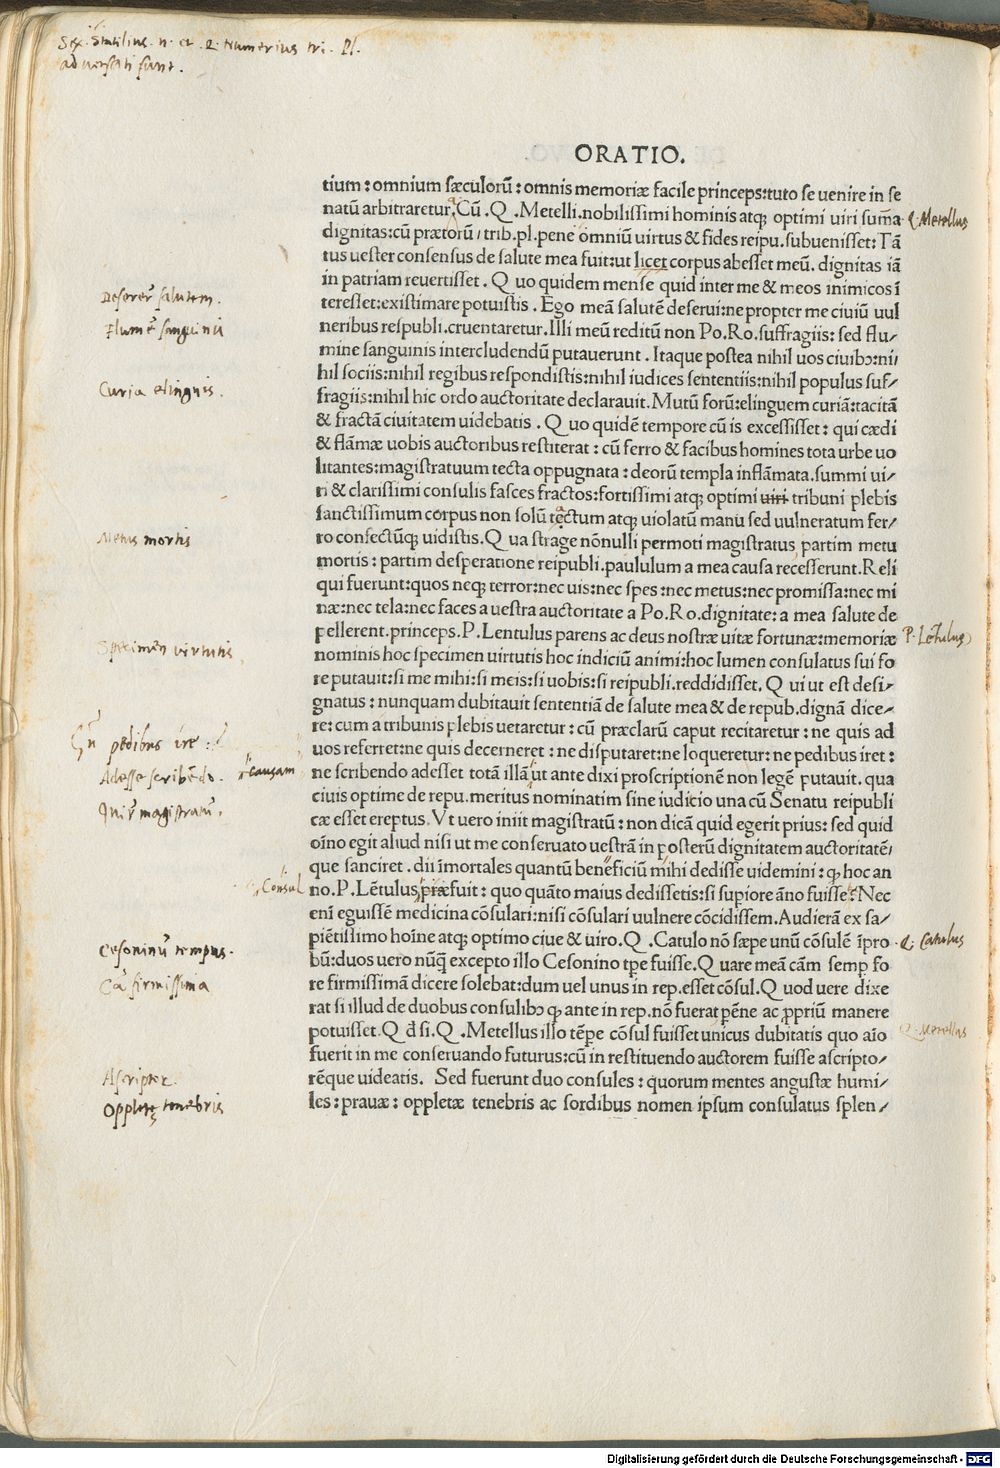 Sex. Statilius. n. et. Q. Numerius tri. Pl.
aduersati sunt.
ORATIO.
tium : omnium sæculorũ : omnis memoriæ facile princeps: tuto se uenire in se
natũ arbitraretur. Cũ .Q .Metelli.nobilissimi hominis atq; optimi uiri sum̃a
Q. Metellus
dignitas: cũ prætorũ / trib.pl.pene omniũ uirtus & fides reipu.subuenisset: Tã
tus uester consensus de salute mea fuit: ut licet corpus abesset meũ. dignitas iã
in patriam reuertisset . Q uo quidem mense quid inter me & meos inimicos ĩ
teresset: existimare potuistis . Ego meã salutẽ deserui: ne propter me ciuiũ uul
Deserere salutem.
neribus respubli.cruentaretur. Illi meũ reditũ non Po. Ro. suffragiis: sed flu/
Flumẽ sanguinis
mine sanguinis intercludendũ putauerunt . Itaque postea nihil uos ciuibꝰ: ni/
hil sociis: nihil regibus respondistis: nihil iudices sententiis: nihil populus suf/
Curia elinguis.
fragiis: nihil hic ordo auctoritate declarauit. Mutũ forũ: elinguem curiã: tacitã
& fractã ciuitatem uidebatis . Q uo quidẽ tempore cũ is excessisset : qui cædi
& flãmæ uobis auctoribus restiterat : cũ ferro & facibus homines tota urbe uo
litantes: magistratuum tecta oppugnata : deorũ templa inflãmata. summi ui/
ri & clarissimi consulis fasces fractos: fortissimi atq; optimi uiri tribuni plebis
sanctissimum corpus non solũ tectum atq; uiolatũ manu sed uulneratum fer/
ro confectũq; uidistis. Q ua strage nõnulli permoti magistratus partim metu
Metus mortis
mortis : partim desperatione reipubli. paululum a mea causa recesserunt. Reli
qui fuerunt: quos neq; terror: nec uis: nec spes : nec metus: nec promissa: nec mi
næ: nec tela: nec faces a uestra auctoritate a Po. Ro. dignitate: a mea salute de
pellerent. princeps. P. Lentulus parens ac deus nostræ uitæ fortunæ: memoriæ
P. Lẽtulus
nominis hoc specimen uirtutis hoc indiciũ animi: hoc lumen consulatus sui fo
Specimen virtutis
re putauit: si me mihi: si meis: si uobis: si reipubli. reddidisset. Q ui ut est desi/
gnatus : nunquam dubitauit sententiã de salute mea & de repub. dignã dice/
re: cum a tribunis plebis uetaretur : cũ præclarũ caput recitaretur : ne quis ad
pedibus ire :
uos referret: ne quis decerneret : ne disputaret: ne loqueretur: ne pedibus iret :
Adesse scribẽdo.
causam
ne scribendo adesset totã illã ut ante dixi proscriptionẽ non legẽ putauit. qua
ciuis optime de repu. meritus nominatim sine iudicio una cũ Senatu reipubli
Inire magistratũ.
cæ esset ereptus . Vt uero iniit magistratũ : non dicã quid egerit prius: sed quid
oĩno egit aliud nisi ut me conseruato uestrã in posterũ dignitatem auctoritatẽ/
que sanciret . dii ĩmortales quantũ beneficiũ mihi dedisse uidemini : ꝙ hoc an
Consul
no. P. Lẽtulus præfuit : quo quãto maius dedissetis: si supiore ãno fuisset? Nec
enĩ eguissẽ medicina cõsulari: nisi cõsulari uulnere cõcidissem. Audierã ex sa/
piẽtissimo hoĩne atq; optimo ciue & uiro. Q .Catulo nõ sæpe unũ cõsulẽ ĩpro
Q. Catulus
Cesoninũ tempus.
bũ: duos uero nũq̃ excepto illo Cesonino tꝑe fuisse. Q uare meã cãm semꝑ fo
Cã firmissima
re firmissimã dicere solebat: dum uel unus in rep. esset cõsul. Q uod uere dixe
rat si illud de duobus consulibꝰ ꝙ ante in rep. nõ fuerat pẽne ac ꝓpriũ manere
potuisset. Q đ si .Q .Metellus illo tẽpe cõsul fuisset unicus dubitatis quo aĩo
Q. Metellus
fuerit in me conseruando futurus: cũ in restituendo auctorem fuisse ascripto/
Ascriptor.
rẽque uideatis. Sed fuerunt duo consules : quorum mentes angustæ humi/
Oppletę tenebris
les : prauæ : oppletæ tenebris ac sordibus nomen ipsum consulatus splen/
Digitalisierung gefördert durch die Deutsche Forschungsgemeinschaft - DFG